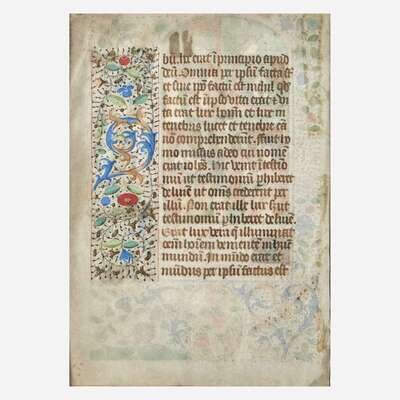 bũ. hoc erat ĩ principio apud
deũ. Omnia per ipsũ facta sũt
et sine ipso factũ est nichil qd̃
factũ est ĩ ipso vita erat et vi
ta erat lux hoĩm et lux in
tenebris lucet et tenebre eã
non comprehenderũt. ffuit ho
mo missus a deo cui nomen
erat iohẽs. hic venit ĩ testimo
niũ ut testimoniũ phiberet
de lumĩe ut omẽs crederent per
illũ. Non erat ille lux sꝫ ut
testimoniũ phiberet de lumĩe.
Erat lux vera que illuminat
oẽm hoĩem venientẽ in hũc
mundũ. In mũdo erat et
mũdus per ipsũ factus est